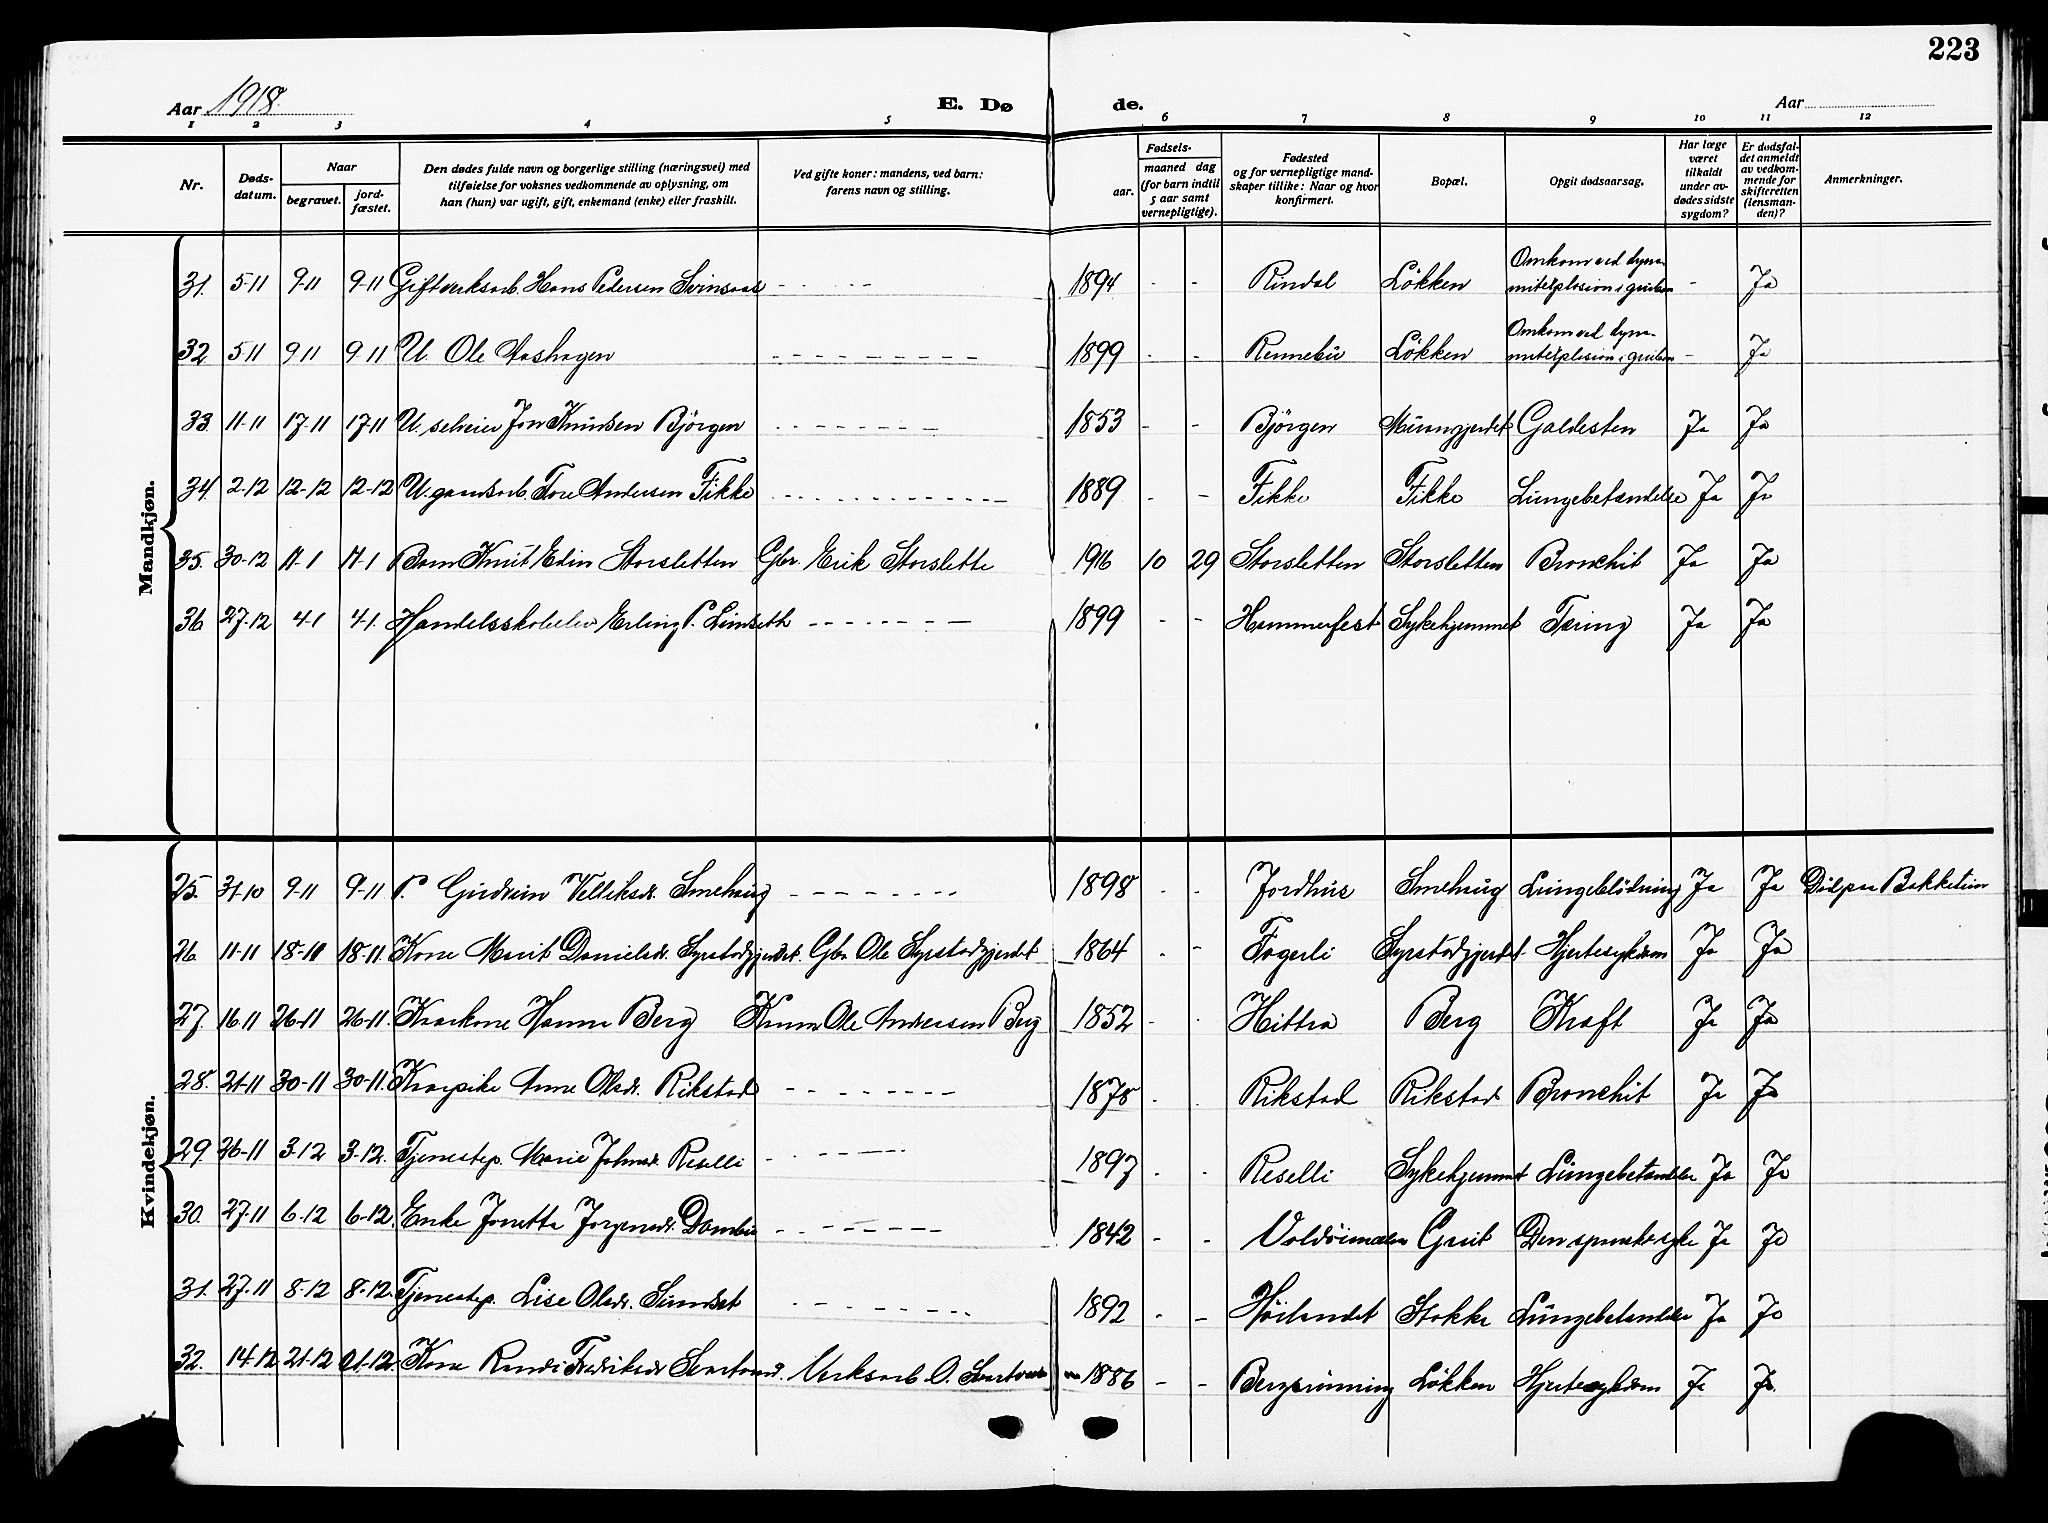 223
Aar 1918.
E. Dø de.
Aar
1 2 3 4 5 6 7 8 9 10 11 12
Nr.
Døds-
datum.
Naar
begravet.
jord-
fæstet.
Den dødes fulde navn og borgerlige stilling (næringsvei) med
tilføielse for voksnes vedkommende av oplysning, om
han (hun) var ugift, gift, enkemand (enke) eller fraskilt.
Ved gifte koner: mandens, ved barn:
farens navn og stilling.
Fødsels-
aar.
maaned dag
(for barn indtil
5 aar samt
vernepligtige).
Fødested
og for vernepligtige mand-
skaper tillike: Naar og hvor
konfirmert.
Bopæl.
Opgit dødsaarsag.
Har læge
været
tilkaldt
under av-
dødes sidste
sygdom?
Er dødsfal-
det anmeldt
av vedkom-
mende for
skifteretten
(lensman-
den)?
Anmerkninger.
Mandkjøn.
31. 5-11 9-11 9-11 Gift verksarb. Hans Pedersen Svinsaas 1894 - - Rindal Løkken Omkom ved dyna-
mitexplosion i gruben - Ja
32 5-11 9-11 9-11 U. Ole Aashagen 1899 - - Rennebu Løkken Omkom ved dyna-
mitexplosion i gruben - Ja
33. 11-11 17-11 17-11 U. selveier Jon Knudsen Bjørgen 1853 - - Bjørgen Galdesten Ja Ja
34 2-12 12-12 12-12 U. gaardsarb. Tore Andersen Fikke 1889 - - Fikke Fikke Lungebetændelse Ja Ja
35. 30-12 11-1 11-1 Barn Knut Edin Storsletten Gbr. Erik Storslette 1916 10 29 Storsletten Storsletten Bronchit Ja Ja
36 27-12 4-1 4-1. Handelsskoleelev Erling P. Lindseth 1899 - - Hammerfest Sykehjemmet Tæring Ja Ja
Kvindekjøn.
25. 31-10 9-11 9-11 P. Gudrun Smehaug 1898 - - Jordhus Smehaug Lungeblødning Ja Ja Død paa Bakketun
26. 11-11 18-11 18-11. Kone Marit Danielsdr. Syrstadgjerdet. Gbr. Ole Syrstadgjerdet 1864 - - Fagerli Syrstadgjerdet. Hjertesykdom Ja Ja
27. 16-11 26-11 26-11. Kaarkone Hanna Berg Kaarm. Ole Andersen Berg 1852 - - Hittra Berg Kræft Ja Ja
28. 21-11 30-11 30-11. Anne Olsdr. Rikstad 1878 - - Rikstad Rikstad Bronchit Ja Ja
29. 26-11 3-12 3-12. Tjenestep. Marie Johnsdr. Reselli 1897 - - Reselli Sykehjemmet Lungebetændelse Ja Ja
30. 27-11 6-12 6-12. Enke Jonetta Jørgensdr. Dombu 1842 - - Grut Den spanske syke Ja Ja
31. 27-11 8-12 8-12. Tjenestep. Lise Olsdr. Sundset 1892 - - Høilandet Stokke Lungebetændelse Ja Ja
32. 14-12 21-12 21-12 Kone Randi Fredriksdr. Svartvand. Verksarb. O. Svartvand 1886 - - Bergsrønning Løkken Hjertesykdom Ja Ja.